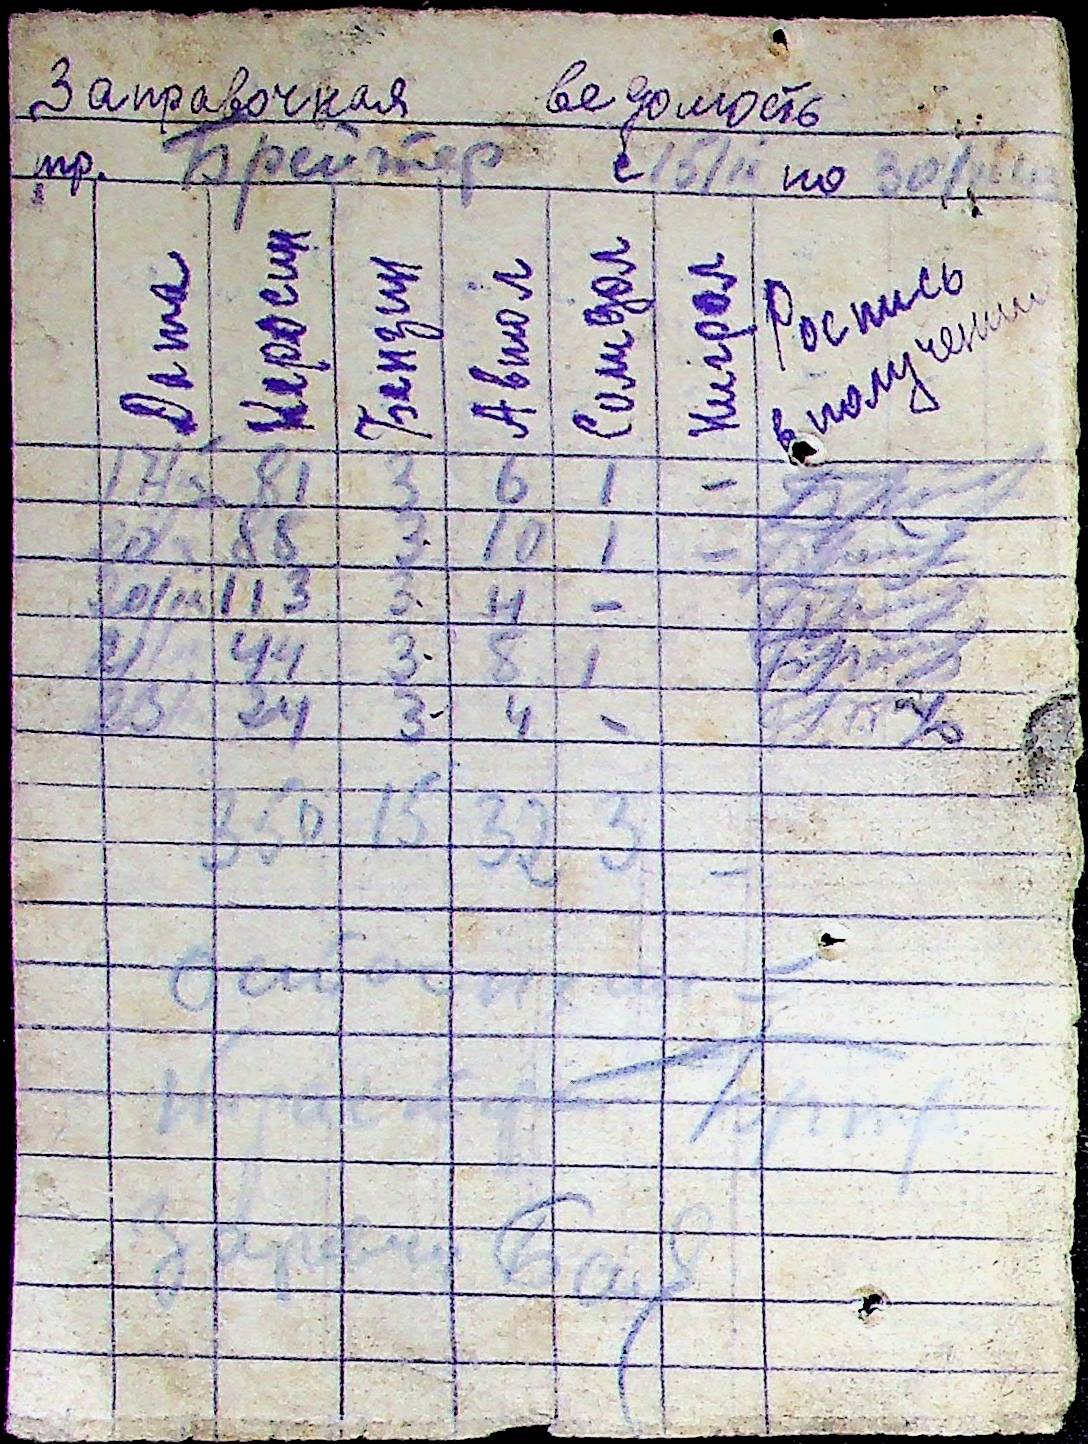 Заправочная ведомость
тр. Брейтер с 15/III по 30/III
Дата Керосин Бензин Автол Солидол Нигрол Роспись в получении
17/ 81 3 6 1 -
20/ 88 3 10 1 -
20/III 113 3 4 -
21/ 44 3 8 1
23/ 24 3 4 -
350 15 32 3 -
Остаток -
Заправщ